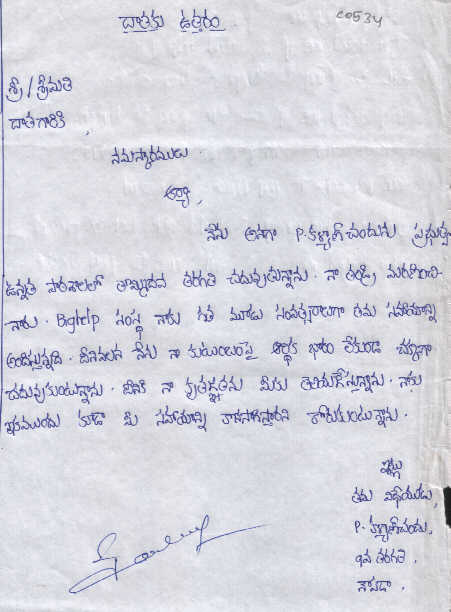 దాతకు ఉత్తరం
C0534
శ్రీ / శ్రీమతి
దాతగారికి ,
నమస్కారములు .
ఆర్యా ,
నేను అనగా P. కళ్యాణ్ చందును ప్రభుత్వ
ఉన్నత పాఠశాలలో తొమ్మిదవ తరగతి చదువుతున్నాను . నా తండ్రి మరణించి-
నారు . Bighelp సంస్థ నాకు గత మూడు సంవత్సరాలుగా తమ సహాయాన్ని
అందిస్తున్నది . దీనివలన నేను నా కుటుంబంపై ఆర్థిక భారం లేకుండా చక్కగా
చదువుకుంటున్నాను . దీనికి నా కృతజ్ఞతను మీకు తెలియజేస్తున్నాను . నాకు
ఇకముందు కూడా మీ సహాయాన్ని కొనసాగిస్తారని కోరుకుంటున్నాను .
ఇట్లు
తమ విధేయుడు,
P. కళ్యాణ్ చందు,
9వ తరగతి ,